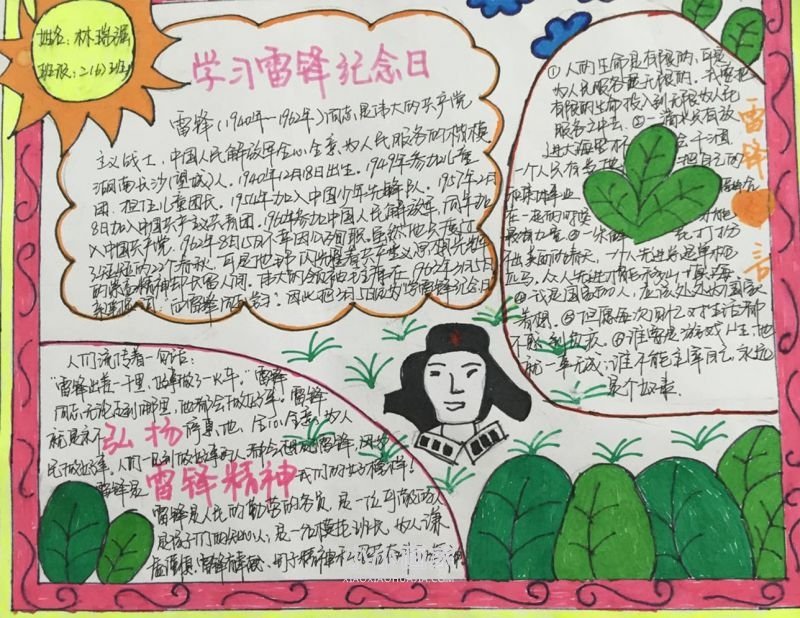 姓名:林瑞
班级:二(6)班
学习雷锋纪念日
雷锋(1940年—1962年)同志是伟大的共产党
主义战士,中国人民解放军全心全意为人民服务的楷模
湖南长沙(望城)人。1940年12月18日出生。1949年参加儿童
团,担任儿童团长。1954年加入中国少年先锋队。1957年2月
8日加入中国共产主义共青团。1960年参加中国人民解放军,同年加
入中国共产党。1962年8月15日不幸因公殉职。虽然他只度过了
短短的22个春秋,可是他
的 精神却长留人间。伟大的领袖毛主席在1963年3月5日
亲笔 :向雷锋同志学习!因此把3月5日定为学雷锋纪念日
①人的生命是有限的,可是
为人民服务是无限的。我要把
有限的生命投入到无限为人民
服务之中去。②一滴水只有放
进大海里 不干涸
一个人只有 把自己
和集体事业
在一起的时候
最有力量。③一朵鲜花打扮
不出美丽的春天,一个人先进总是单枪
匹马,众人先进才能 。
④我是国家的人,应该处处为国家
着想。⑤但愿每次回忆,对生活都
不感到负疚。⑥谁要是游戏人生,他
就一事无成;谁不能主宰自己,永远
是个奴隶。
雷锋
言
人们流传着一句话:
"雷锋出差一千里,好事做了一火车。"雷锋
同志无论走到哪里,他都会做好事。雷锋
就是这不 地,全心全意为人
弘扬
民做好事。人们一见到做好事的人都会想起雷锋
雷锋是 我们的好榜样!
雷锋精神
雷锋是人民的勤劳的务员,是一位可敬的人
是孩子们的知心人,是一名模范班长,为人谦
XIAOXIAOHUAJIA.COM